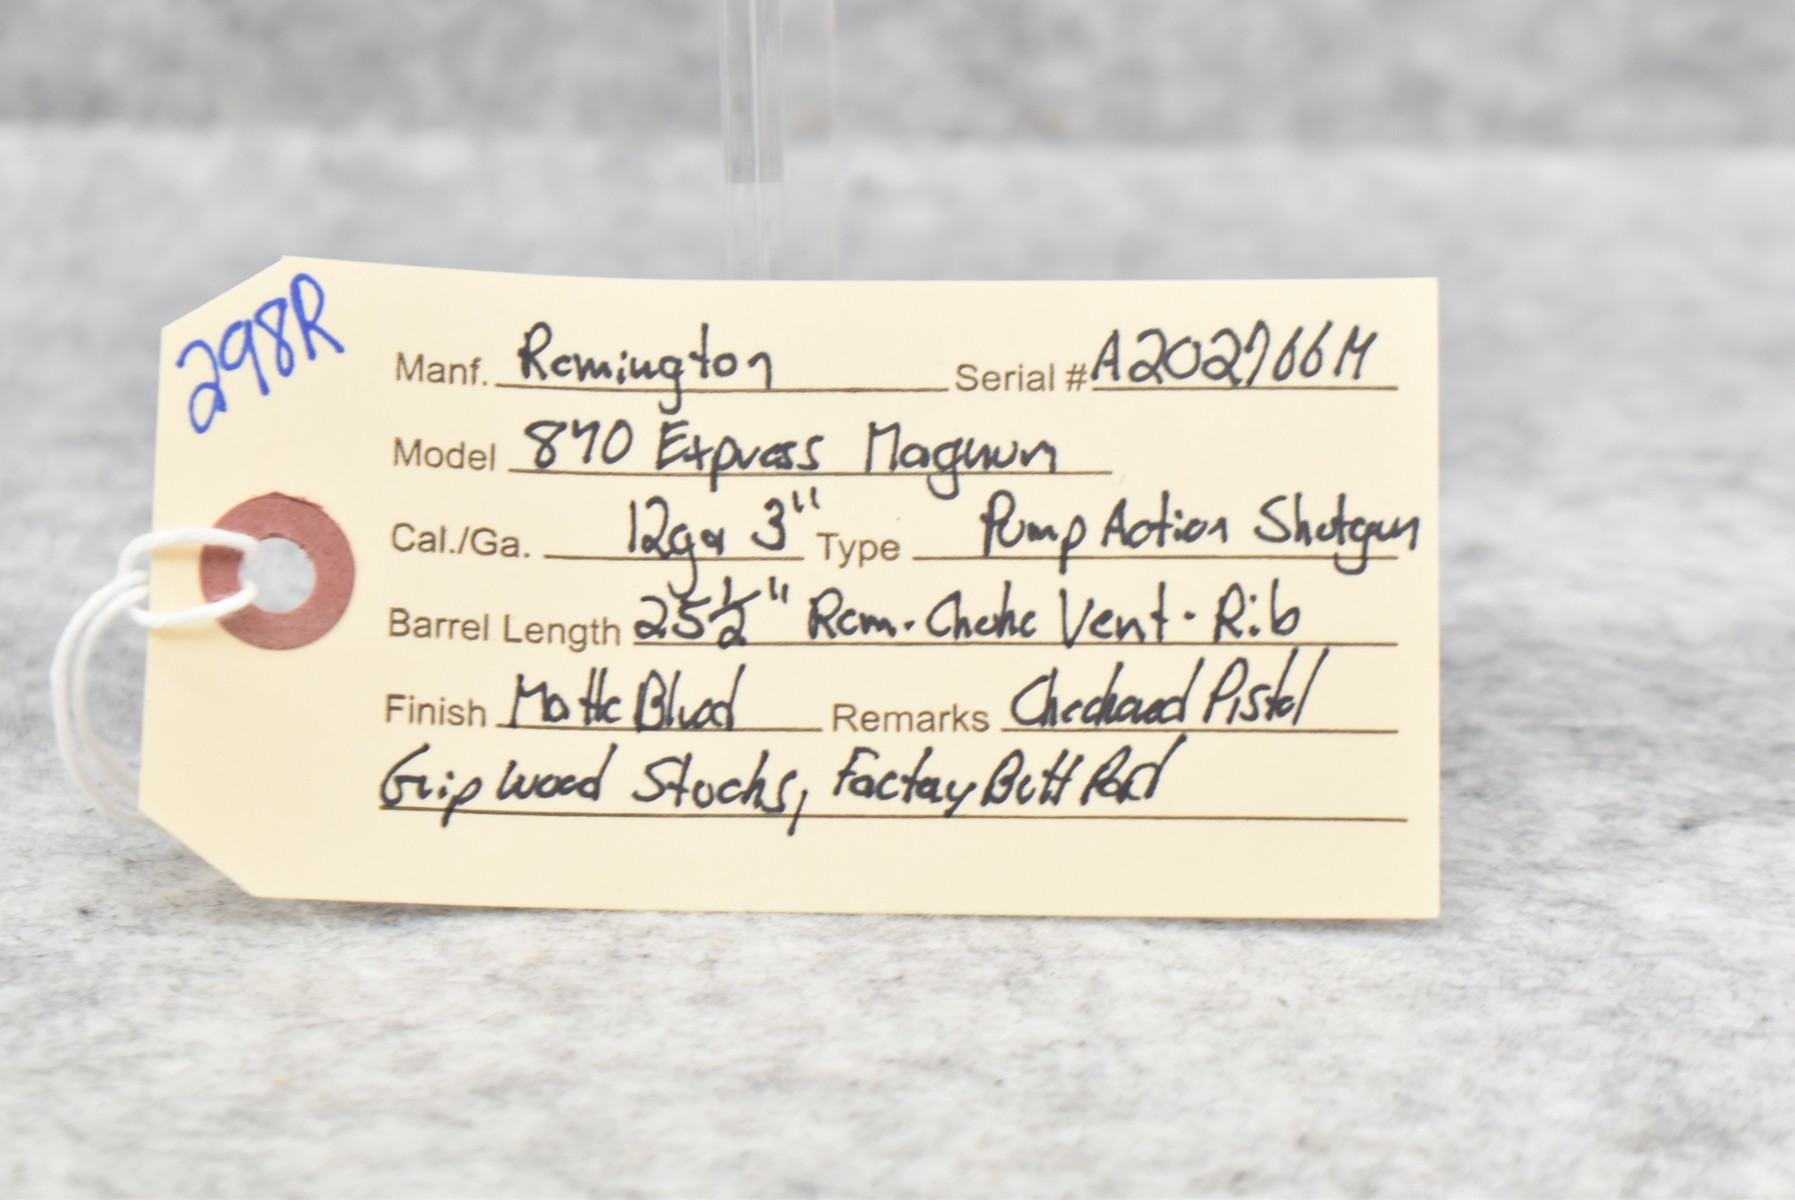 298R
Manf. Remington Serial # A202766M
Model 870 Express Magnum
Cal./Ga. 12ga 3" Type Pump Action Shotgun
Barrel Length 25½" Rem. Choke Vent-Rib
Finish Matte Blued Remarks Checkered Pistol
Grip Wood Stocks, Factory Butt Pad